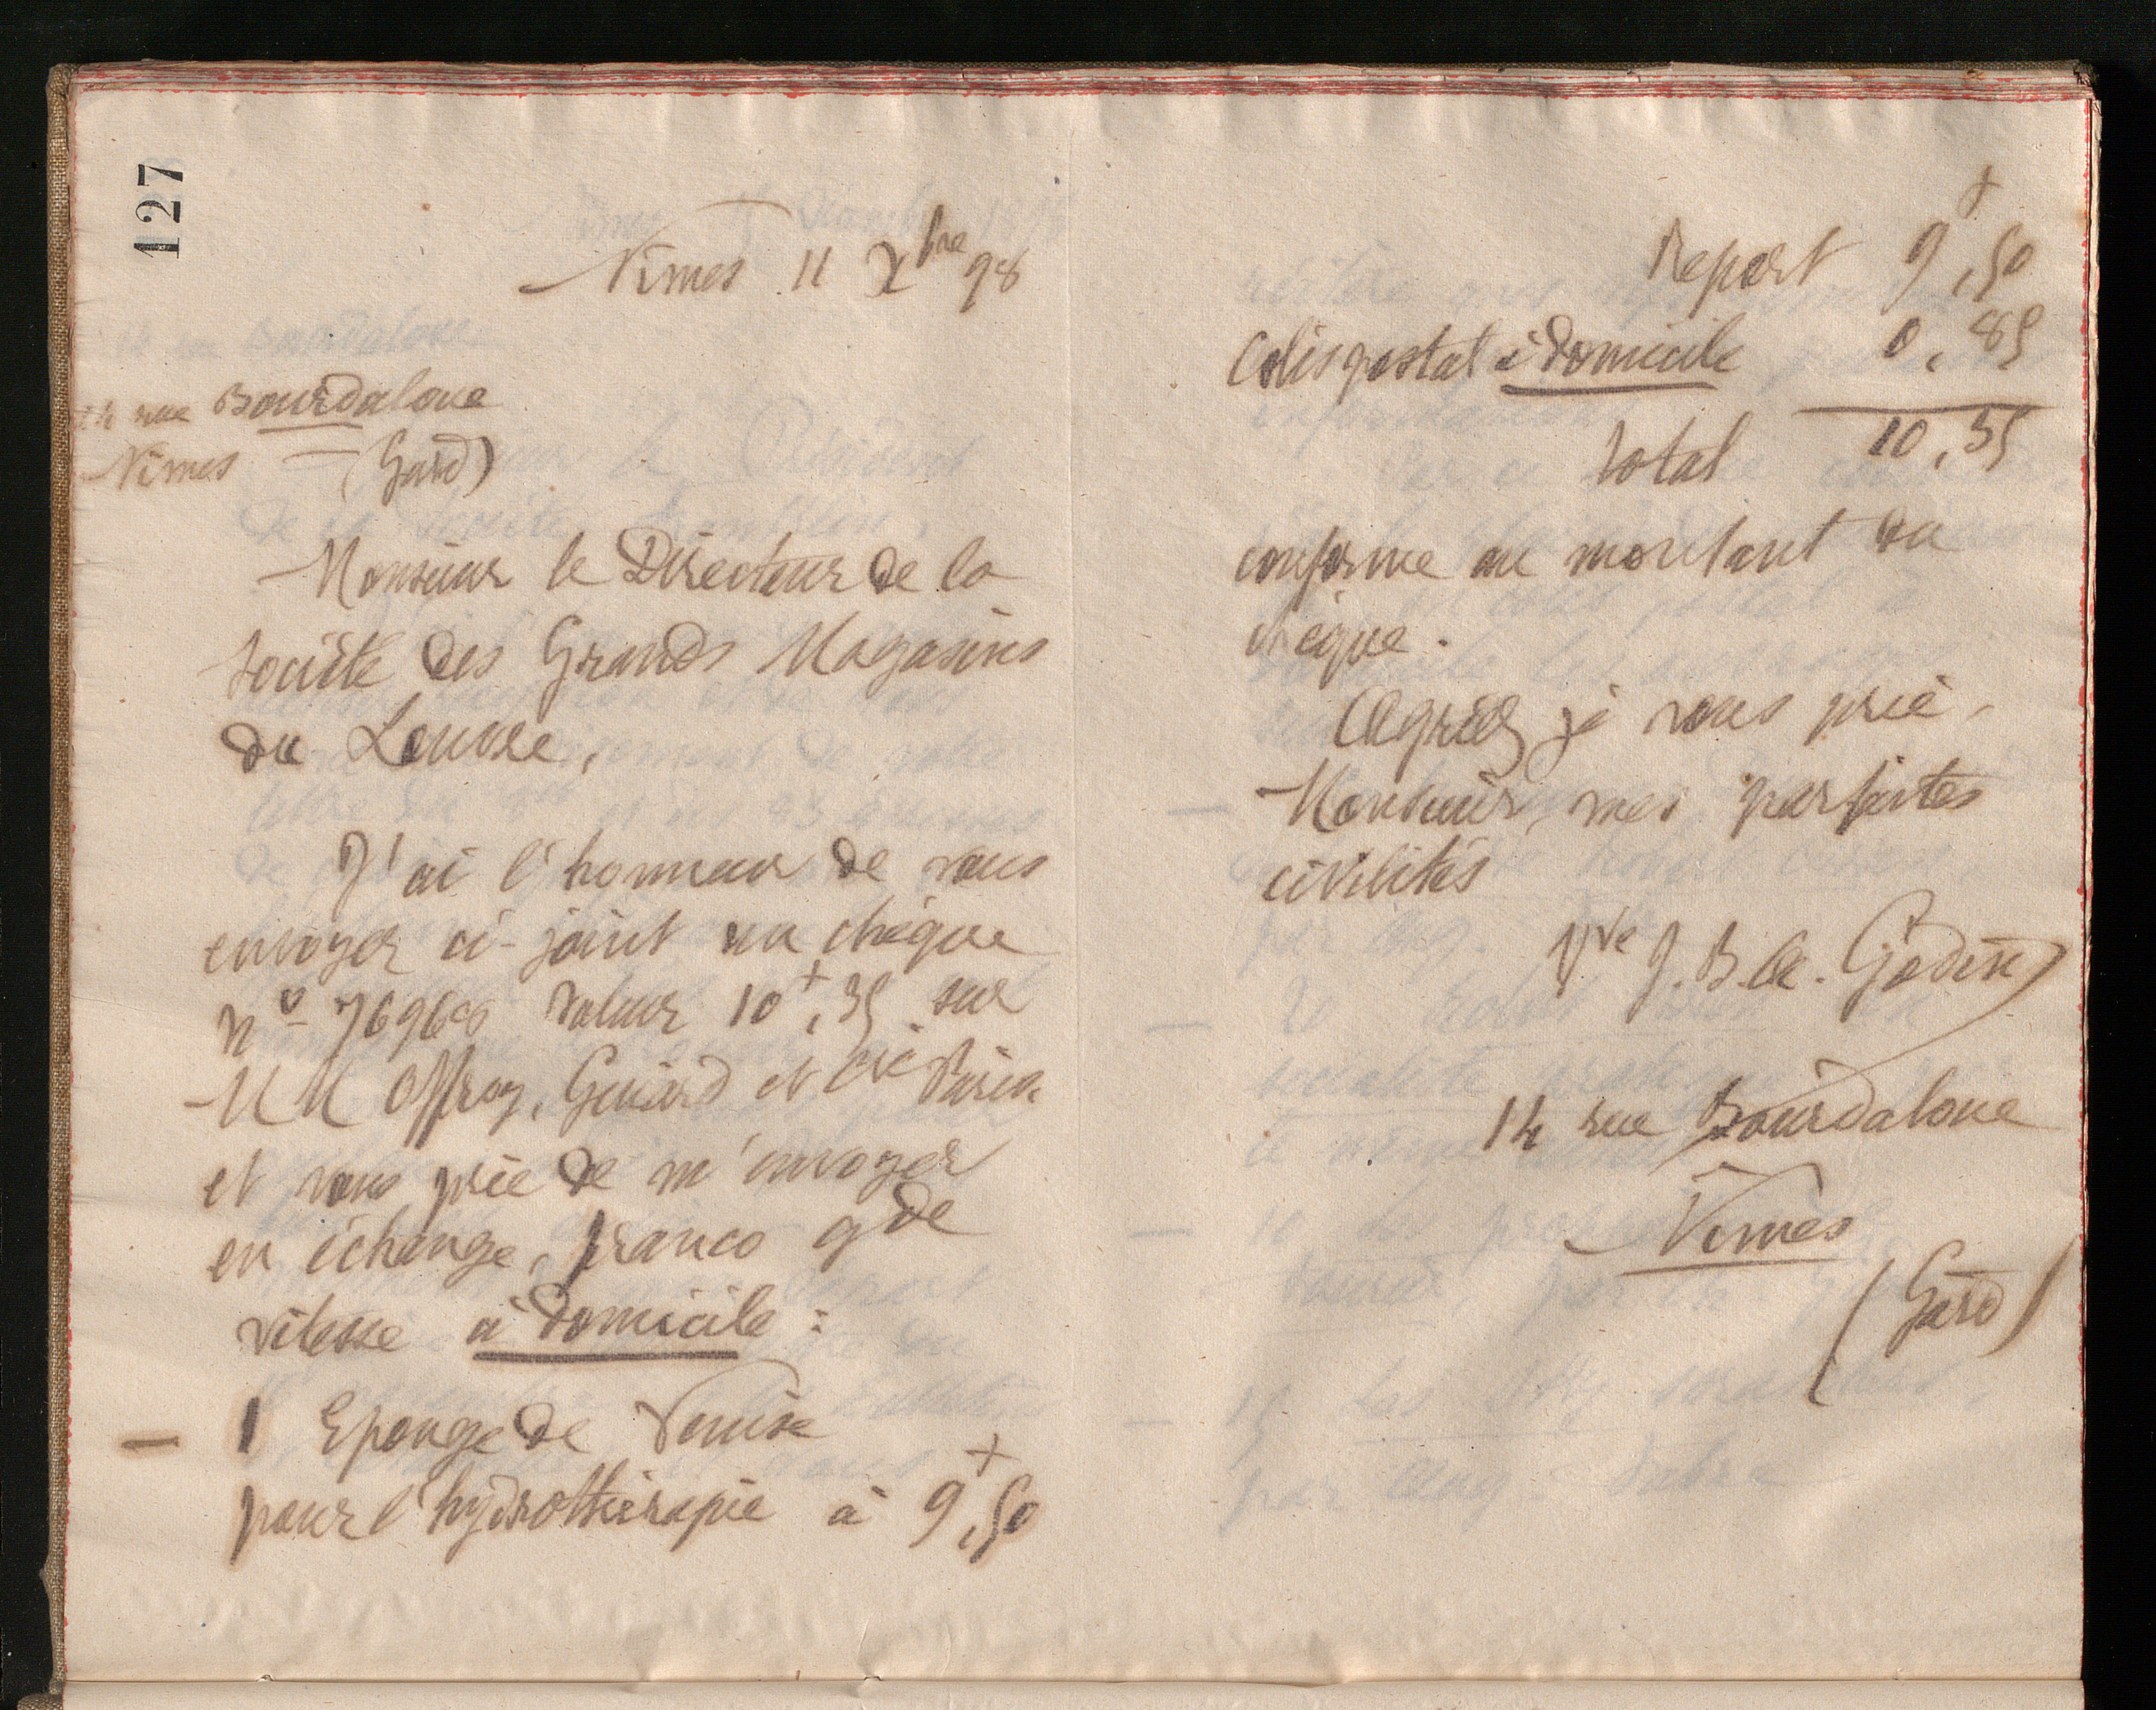 127
Nîmes 11 Xbre 98
14 rue Bourdaloue
Nîmes (Gard)
Monsieur le Directeur de la
Société des Grands Magasins
du Louvre,
J'ai l'honneur de vous
envoyer ci-joint un chèque
no valeur 10f,35 sur
MM Offroy, Guiard et Cie Paris
et vous prie de m'envoyer
en échange, franco gde
vitesse à domicile :
1 Eponge de Venise
pour l'hydrothérapie à 9f,50
Report 9f,50
Colis postal à domicile 0,85
Total 10,35
conforme au montant du
chèque.
Agréez je vous prie,
Monsieur, mes parfaites
civilités
Vve J. B. A. Godin
14 rue Bourdaloue
Nîmes
(Gard)